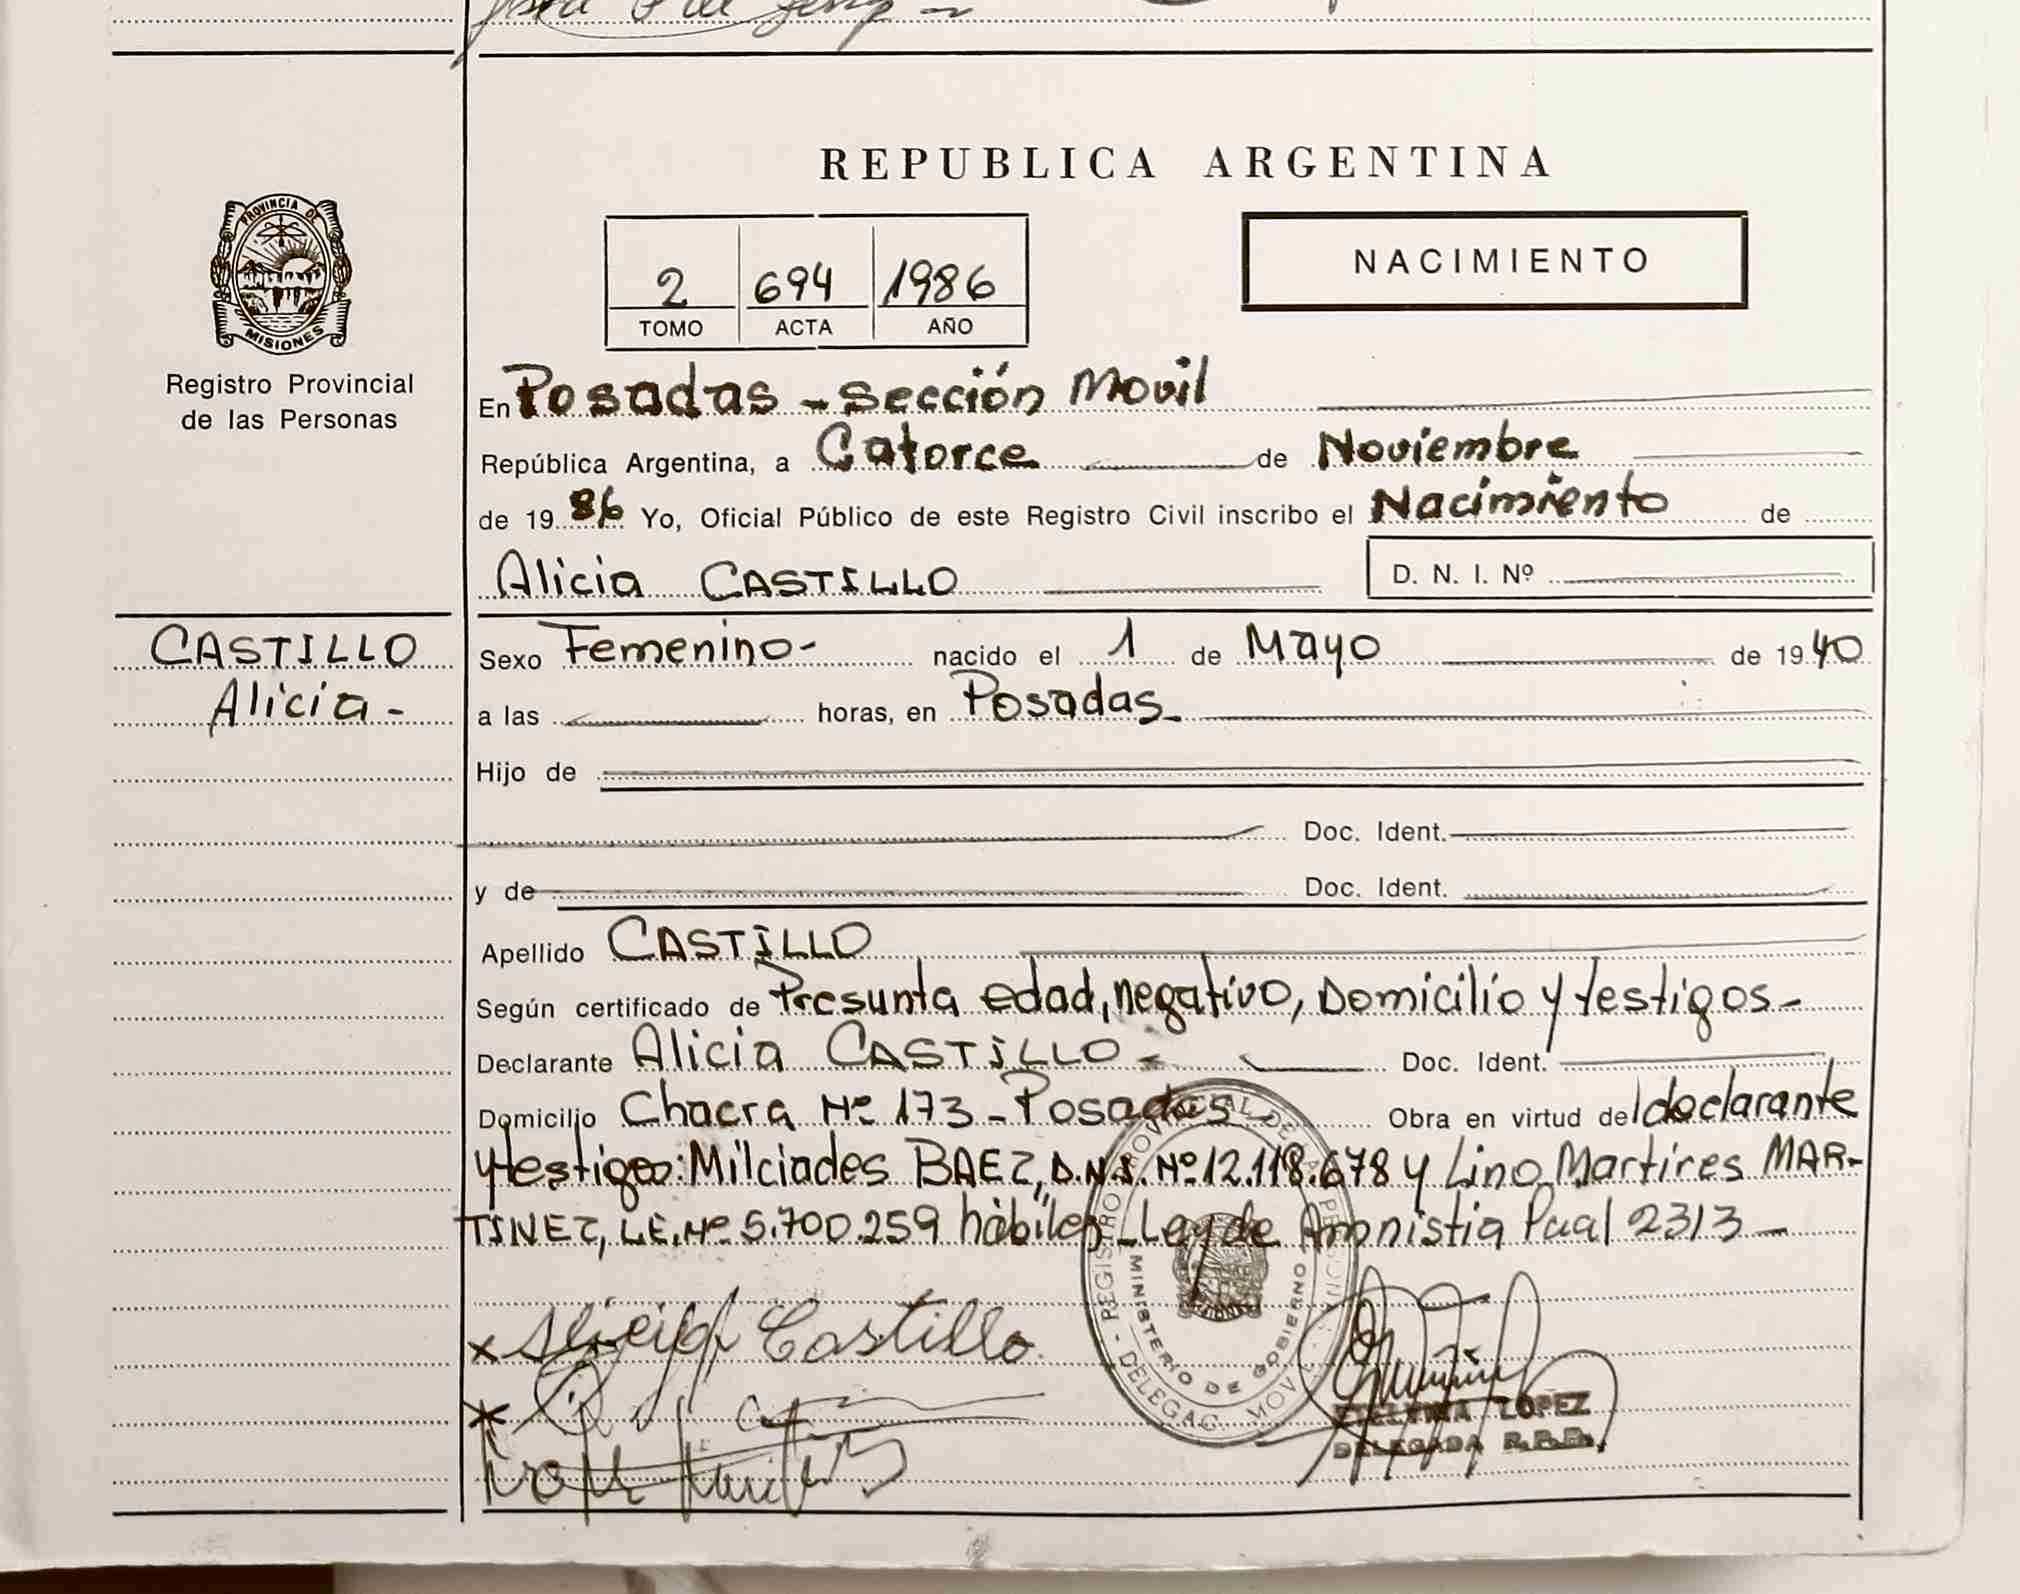 REPUBLICA ARGENTINA
PROVINCIA DE
MISIONES
Registro Provincial
de las Personas
2 694 1986
TOMO ACTA AÑO
NACIMIENTO
En Posadas - Sección Movil
República Argentina, a Catorce de Noviembre
de 1986 Yo, Oficial Público de este Registro Civil inscribo el Nacimiento de
Alicia CASTILLO D. N. I. Nº
CASTILLO
Alicia -
Sexo Femenino - nacido el 1 de Mayo de 1940
a las horas, en Posadas -
Hijo de
Doc. Ident.
y de Doc. Ident.
Apellido CASTILLO
Según certificado de Presunta edad, negativo, Domicilio y testigos -
Declarante Alicia CASTILLO - Doc. Ident.
Domicilio Chacra Nº 173 - Posadas Obra en virtud del declarante
y testigos: Milciades BAEZ, D.N.I. Nº 12.118.678 y Lino Martires MAR-
TINEZ, L.E. Nº 5.700.259 hábiles - Ley de Amnistia Pual 2313 -
x Alicia Castillo
REGISTRO PROVINCIAL DE LAS PERSONAS
MINISTERIO DE GOBIERNO
LOPEZ
DELEGADA R.P.P.